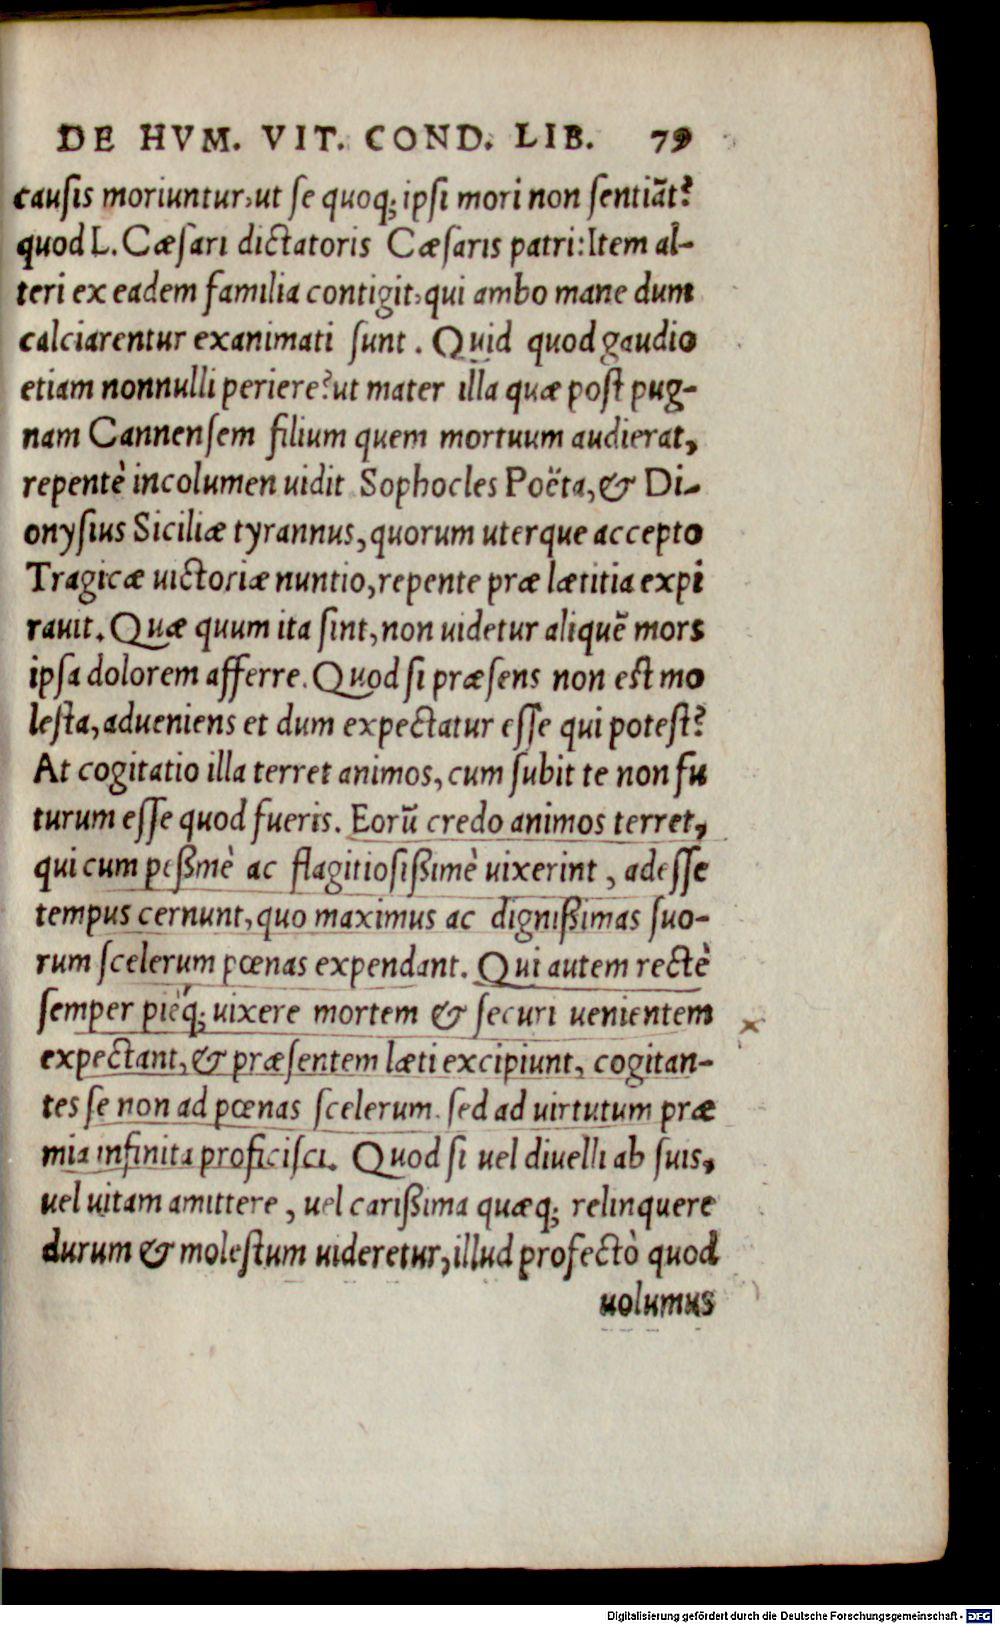 DE HVM. VIT. COND. LIB. 79
causis moriuntur, ut se quoq; ipsi mori non sentiãt?
quod L. Cæsari dictatoris Cæsaris patri: Item al-
teri ex eadem familia contigit, qui ambo mane dum
calciarentur exanimati sunt. Quid quod gaudio
etiam nonnulli periere? ut mater illa quæ post pug-
nam Cannensem filium quem mortuum audierat,
repentè incolumen uidit Sophocles Poëta, & Di-
onysius Siciliæ tyrannus, quorum uterque accepto
Tragicæ uictoriæ nuntio, repente præ lætitia expi
rauit. Quæ quum ita sint, non uidetur aliquẽ mors
ipsa dolorem afferre. Quod si præsens non est mo
lesta, adueniens et dum expectatur esse qui potest?
At cogitatio illa terret animos, cum subit te non fu
turum esse quod fueris. Eorũ credo animos terret,
qui cum peßmè ac flagitiosißimè uixerint, adesse
tempus cernunt, quo maximus ac dignißimas suo-
rum scelerum pœnas expendant. Qui autem rectè
semper pièq́; uixere mortem & securi uenientem
expectant, & præsentem læti excipiunt, cogitan-
tes se non ad pœnas scelerum. sed ad uirtutum præ
mia infinita proficisci. Quod si uel diuelli ab suis,
uel uitam amittere, uel carißima quæq; relinquere
durum & molestum uideretur, illud profectò quod
uolumus
Digitalisierung gefördert durch die Deutsche Forschungsgemeinschaft - DFG